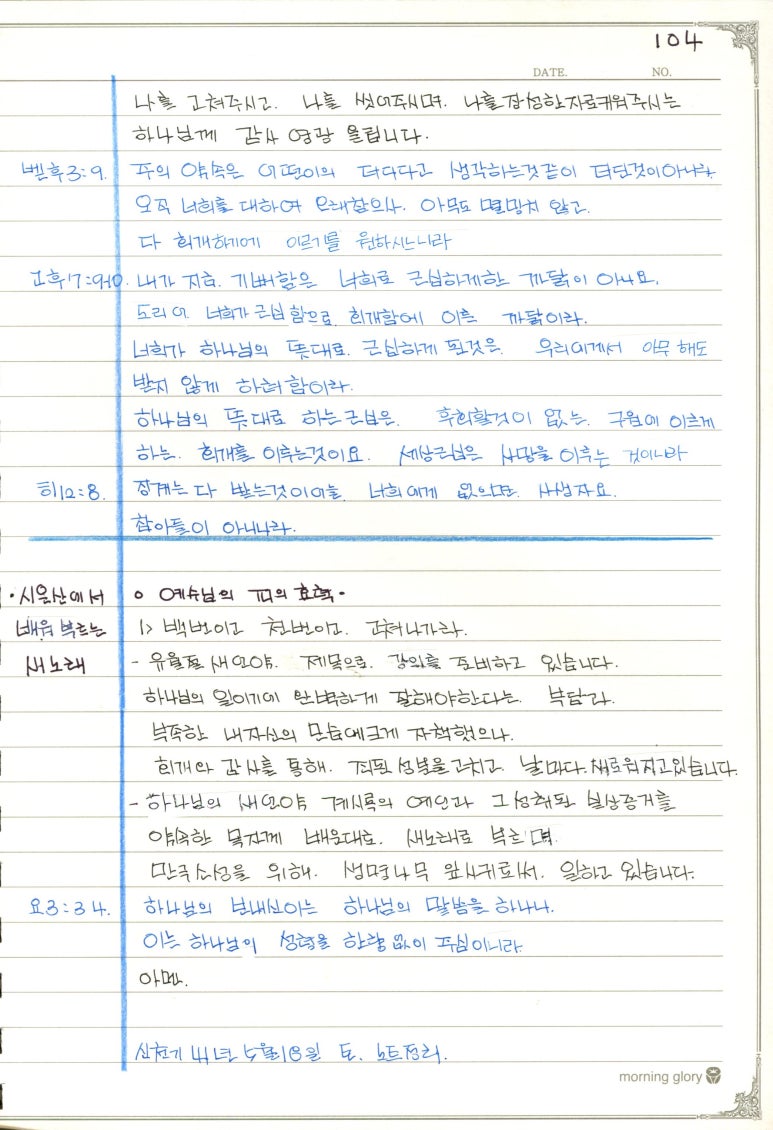 104
DATE. NO.
나를 고쳐주시고. 나를 씻어주시며. 나를 장성한자로키워주시는
하나님께 감사 영광 올립니다.
벧후3:9. 주의 약속은 어떤이의 더디다고 생각하는것같이 더딘것이아니라
오직 너희를 대하여 오래참으사. 아무도 멸망치 않고.
다 회개하기에 이르기를 원하시느니라
고후7:9-10. 내가 지금. 기뻐함은 너희로 근심하게한 까닭이 아니요.
도리어 너희가 근심함으로. 회개함에 이른 까닭이라.
너희가 하나님의 뜻대로. 근심하게 된것은. 우리에게서 아무 해도
받지 않게 하려함이라.
하나님의 뜻대로 하는근심은. 후회할것이 없는. 구원에 이르게
하는. 회개를 이루는것이요. 세상근심은 사망을 이루는 것이니라
히12:8. 징계는 다 받는것이어늘. 너희에게 없으면. 사생자요.
참아들이 아니니라.
·시온산에서 ○ 예수님의 피의 효력.
배워 부르는 1> 백번이고 천번이고. 고쳐나가라.
새노래 - 유월절 새언약. 제목으로. 강의를 준비하고 있습니다.
하나님의 일이기에 완벽하게 잘해야한다는. 부담과.
부족한 내자신의 모습에크게 자책했으나.
회개와 감사를 통해. 죄된 성분을고치고 날마다. 새로워지고있습니다.
- 하나님의 새언약 계시록의 예언과 그성취된 실상증거를
약속한 목자께 배운대로. 새노래로 부르며.
만국소성을 위해. 생명나무 잎사귀로서. 일하고 있습니다.
요3:34. 하나님의 보내신이는 하나님의 말씀을 하나니.
이는 하나님이 성령을 한량 없이 주심이니라
아멘.
신천기 41년 5월18일 토. 노트정리.
morning glory